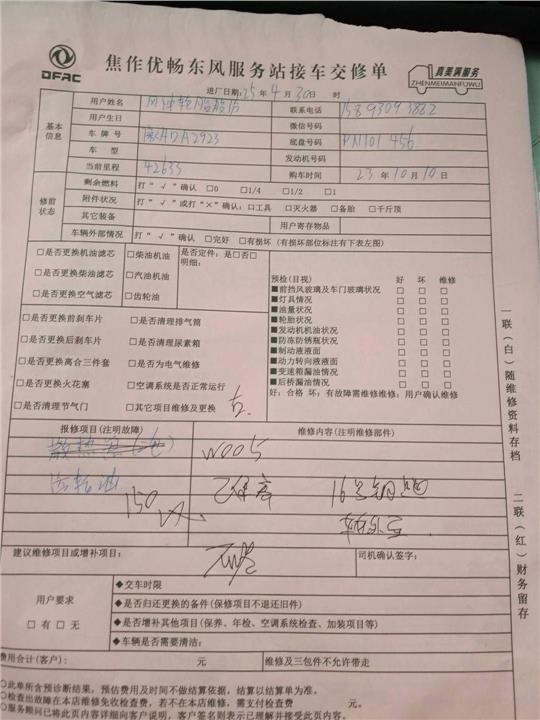 DFAC
焦作优畅东风服务站接车交修单
真要满服务
ZHENMEIMANFUWU
进厂日期: 25 年 4 月 30 日 时
基本信息
用户姓名 风神轮胎股份 联系电话 15893093882
用户生日 微信号码
车牌号 豫ADA2923 底盘号码 PN101456
车型 发动机号码
当前里程 42633 购车时间 23 年 10 月 10 日
修前状态
剩余燃料 打“√”确认 □0 □1/4 □1/2 □1
附件状况 打“√”或打“×”确认: □工具 □灭火器 □备胎 □千斤顶
其它装备 用户寄存物品
车辆外部情况 打“√”确认 □完好 □有损坏 (有损坏部位标注有下表左图)
□是否更换机油滤芯 □柴油机油 是否定件: 是□否□
明细:
□是否更换柴油滤芯 □汽油机油
□是否更换空气滤芯 □齿轮油
预检(目视) 好 坏 维修
■前挡风玻璃及车门玻璃状况 □ □ □
■灯具情况 □ □ □
■油量状况 □ □ □
■轮胎状况 □ □ □
■发动机机油状况 □ □ □
■防冻防锈瓶状况 □ □ □
■制动液液面 □ □ □
■动力转向液液面 □ □ □
■变速箱漏油情况 □ □ □
■后桥漏油情况 □ □ □
好: 合格 坏: 有故障需维修维修: 用户确认维修
□是否更换前刹车片 □是否清理排气筒
□是否更换后刹车片 □是否清理尿素箱
□是否更换离合三件套 □是否为电气维修
□是否更换火花塞 □空调系统是否正常运行
□是否清理节气门 □其它项目维修及更换
报修项目(注明故障) 维修内容(注明维修部件)
W005
齿轮油
150
建议维修项目或增补项目: 司机确认签字:
用户要求
□有 □无
◆交车时限
◆是否归还更换的备件(保修项目不退还旧件)
◆是否增补其他项目(保养、年检、空调系统检查、加装项目等)
◆车辆是否需要清洁:
费用合计(客户): 元 维修及三包件不允许带走
○此单所含预诊断结果, 预估费用及时间不做结算依据, 结算以结算单为准。
○检查出故障在本店维修免收检查费, 若不在本店维修, 需支付检查费 元。
○服务顾问已将此页内容详细向客户说明, 客户签名则表示已理解并接受此页内容。
一联(白)随维修资料存档
二联(红)财务留存